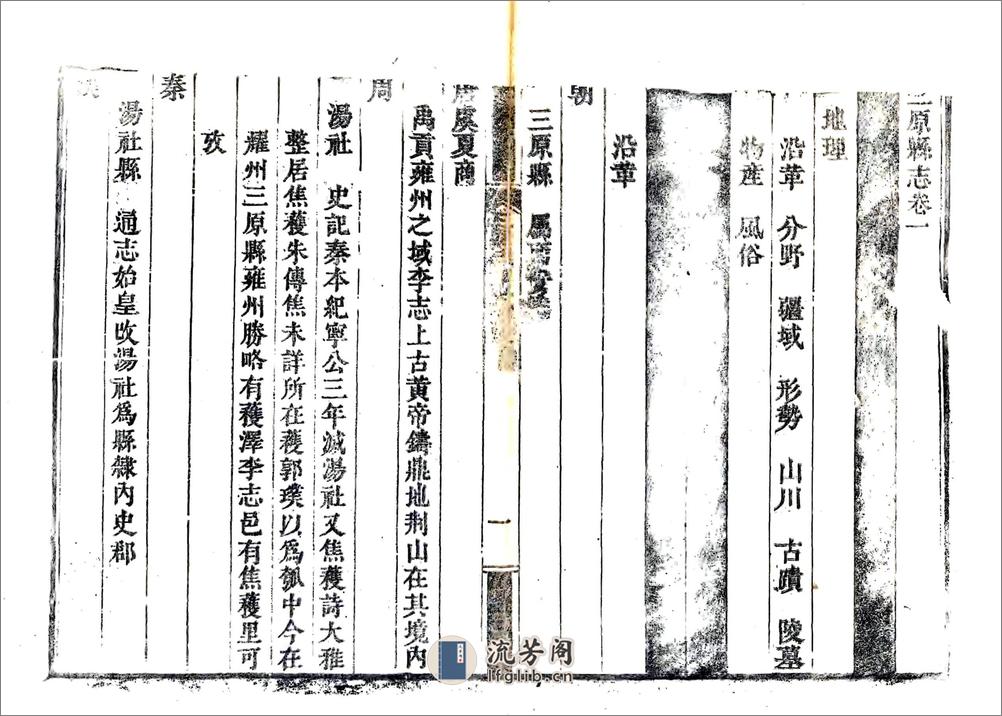 三原縣志卷一
地理
沿革 分野 疆域 形勢 山川 古蹟 陵墓
物產 風俗
沿革
朝
三原縣 屬
唐虞夏商
禹貢雍州之域李志上古黃帝鑄鼎地荆山在其境內
周
湯社 史記秦本紀寧公三年滅湯社又焦穫詩大雅
整居焦穫朱傳焦未詳所在穫郭璞以爲瓠中今在
耀州三原縣雍州勝略有穫澤李志邑有焦穫里可
攷
秦
湯社縣 通志始皇改湯社爲縣隸內史郡
漢
一
流芳阁
lfglib.cn